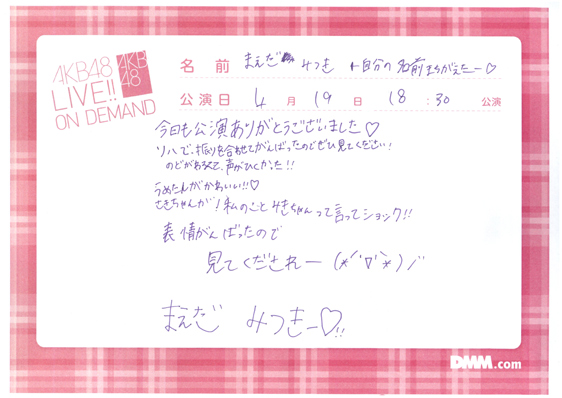 AKB48
LIVE!!
ON DEMAND
AKB
48
名 前 まえだ みつき ←自分の名前まちがえたー♡
公演日 4 月 19 日 18 : 30 公演
今日も公演ありがとうございました♡
リハで、振りを合わせてがんばったのでぜひ見てください!
のどがおえて、声がひくかった!!
うめたんがかわいい!!♡
さきちゃんが!私のことみきちゃんって言ってショック!!
表情がんばったので
見てくだされー (*´▽`*)ノ
まえだ みつきー♡!!
DMM.com